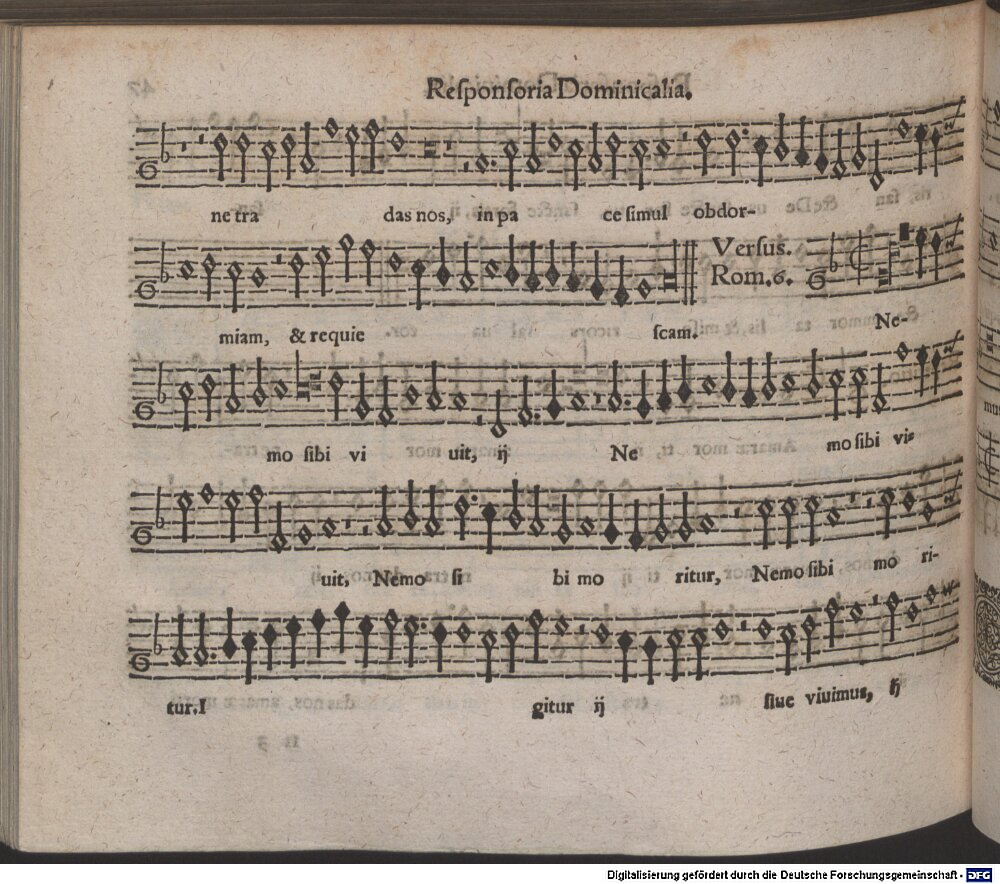 Reſponſoria Dominicalia.
ne tra das nos, in pa ce ſimul obdor-
Verſus.
Rom. 6.
miam, & requie ſcam. Ne-
mo ſibi vi uit, ij Ne mo ſibi vi-
uit, Nemo ſi bi mo ritur, Nemo ſibi mo ri-
tur. I gitur ij ſiue viuimus, ij
Digitalisierung gefördert durch die Deutsche Forschungsgemeinschaft - DFG